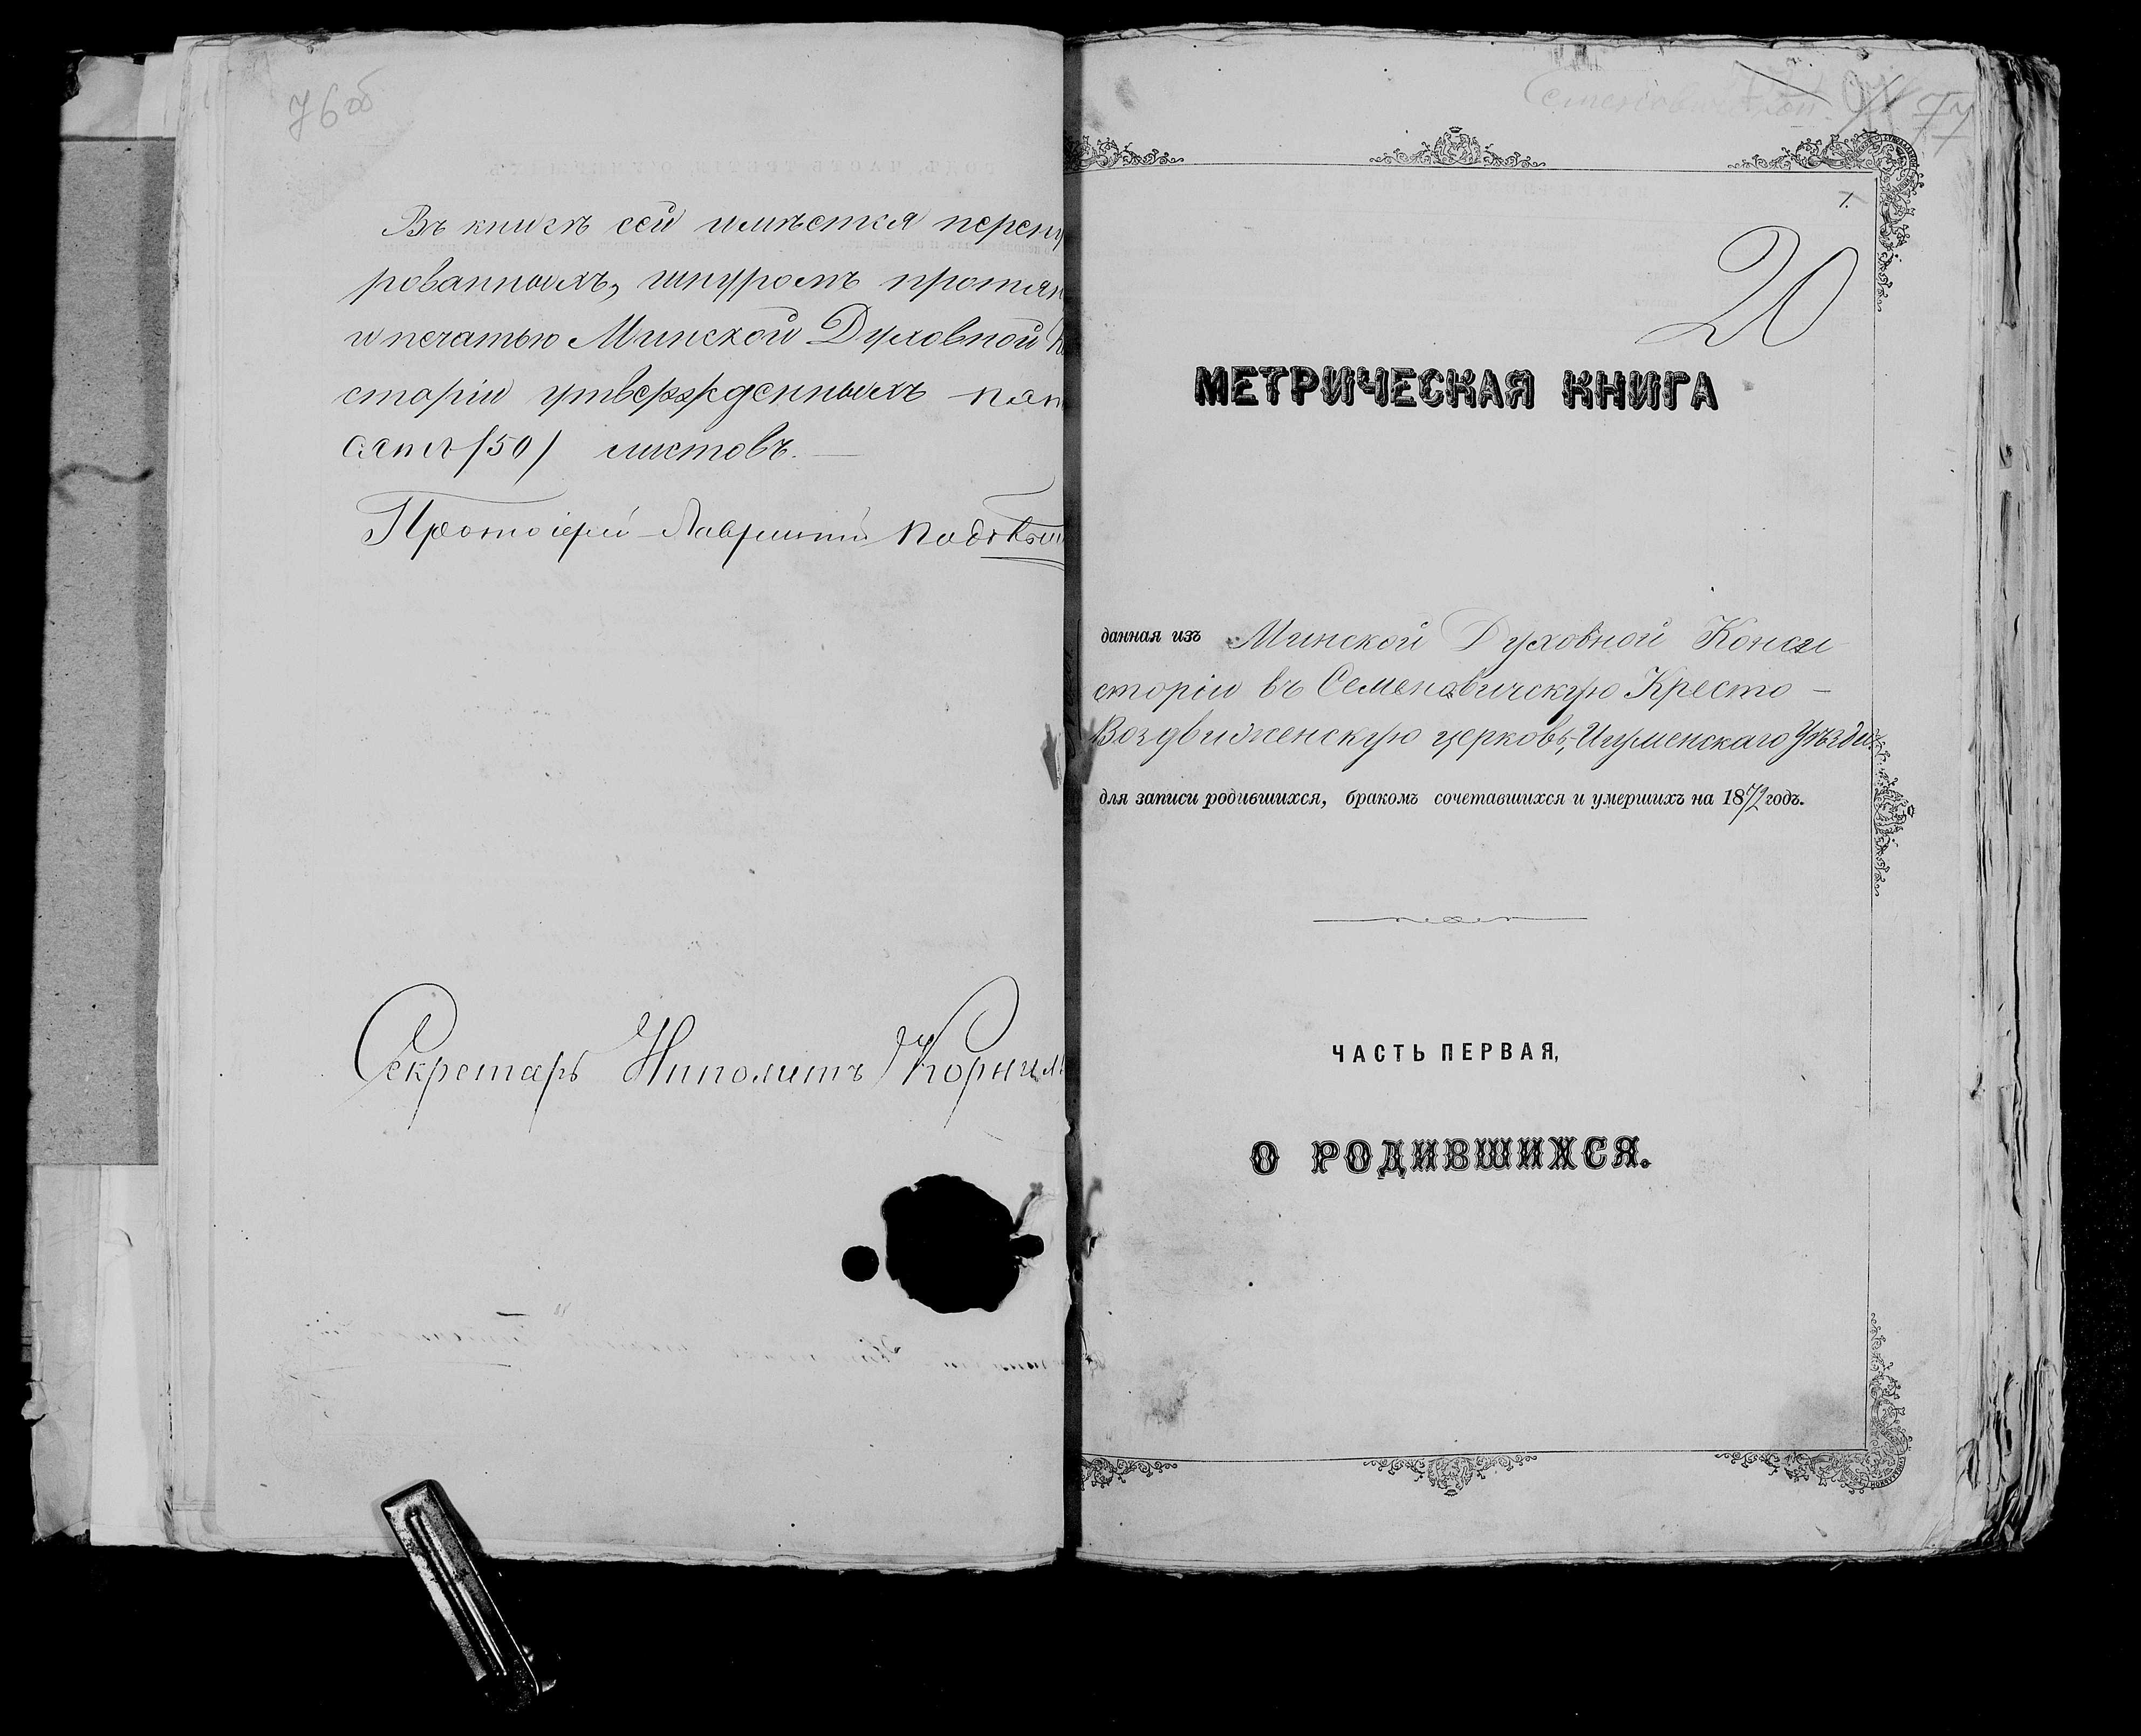 76 об
Въ книгѣ сей имѣется перену
рованныхъ, шнуромъ протян
и печатью Минской Духовной К
сторіи утвержденныхъ пят
десятъ /50/ листовъ.
Протоіерей Лаврентій
Секретарь Ипполитъ Корнил
Семеновичской 77
1.
20
МЕТРИЧЕСКАЯ КНИГА
данная изъ Минской Духовной Конси
сторіи въ Семеновичскую Кресто-
Воздвиженскую церковь, Игуменскаго Уѣзда
для записи родившихся, бракомъ сочетавшихся и умершихъ на 1872 годъ.
ЧАСТЬ ПЕРВАЯ,
О РОДИВШИХСЯ.